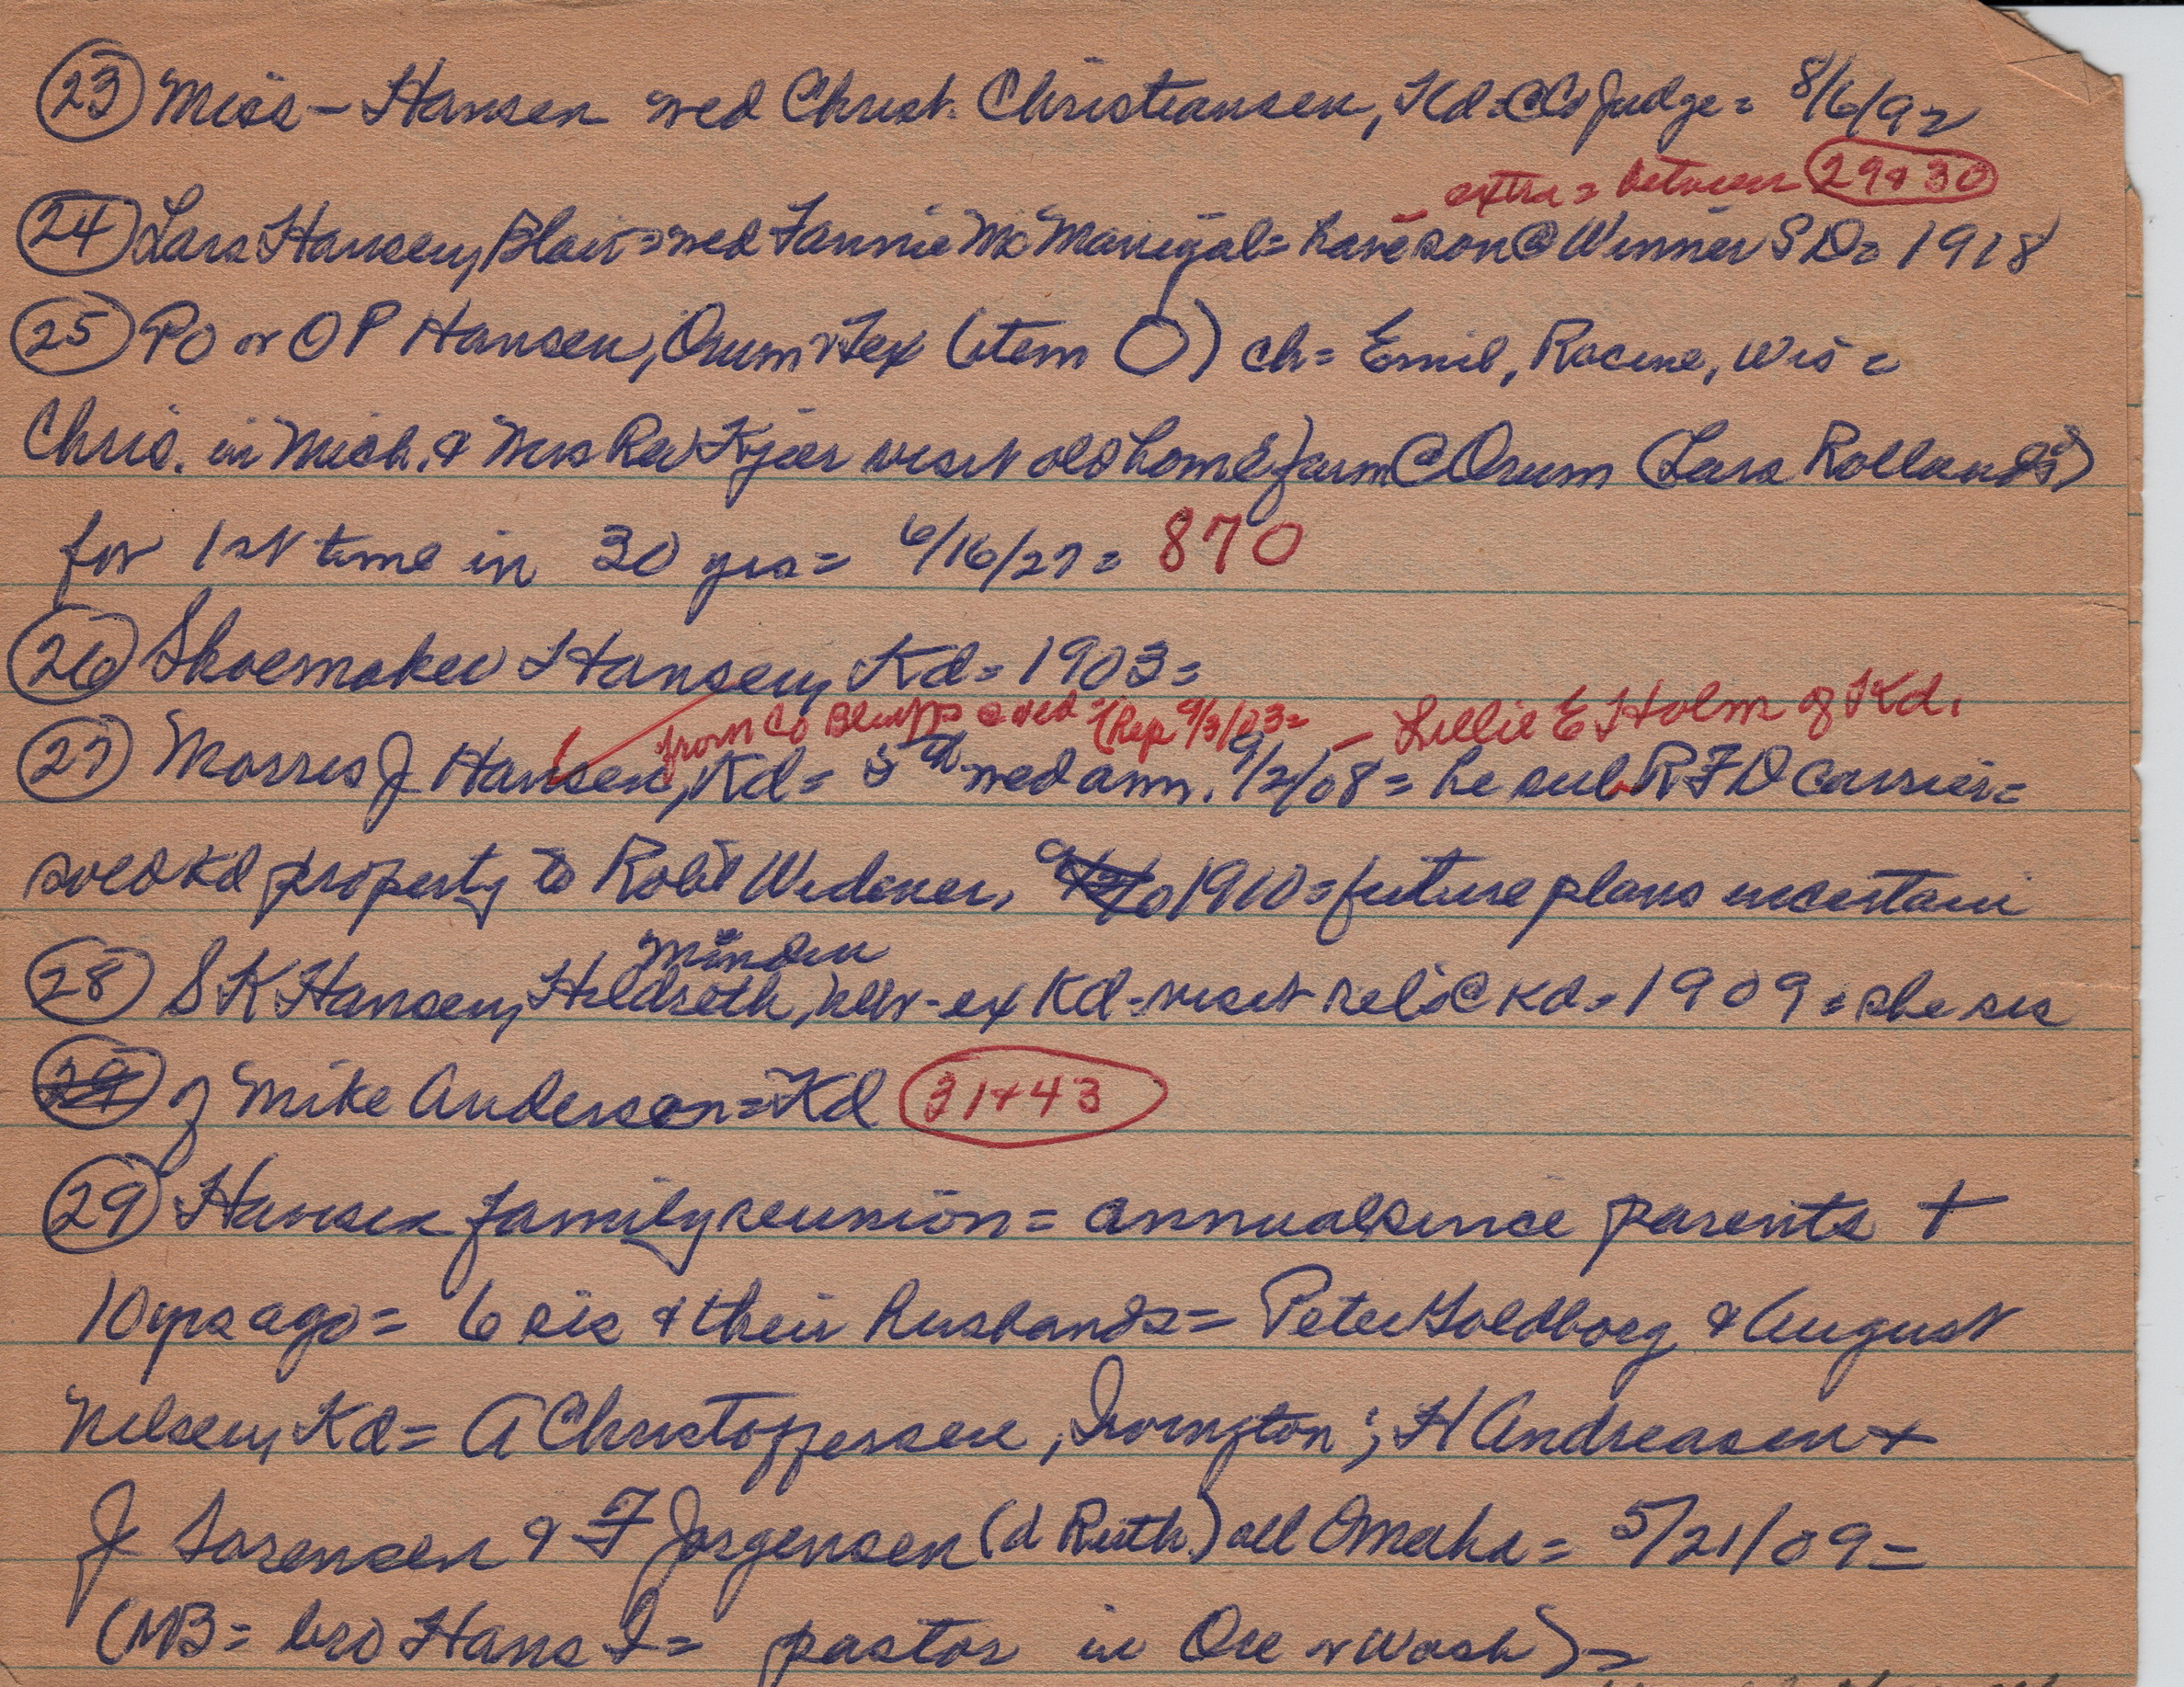 (23) Miss - Hansen wed Christ. Christiansen, Kd = Co Judge = 8/6/92
extra = between (29 & 30)
(24) Lars Hansen, Blair = wed Fannie McManigal = have son @ Winner S D = 1918
(25) PO or OP Hansen, Orum & Tex (item O) ch = Emil, Racine, Wis =
Chris. in Mich. & Mrs Rev Kjaer visit old home farm @ Orum (Lars Rollands)
for 1st time in 30 yrs = 6/16/27 = 870
(26) Shoemaker Hansen, Kd = 1903 =
from Co Bluffs & wed = (Rep 9/3/03 = - Lillie E Holm of Kd.
(27) Morris J Hansen, Kd = 5th wed ann. 9/2/08 = he sub RFD carrier =
sold Kd property to Robt Widener, 1910 = future plans uncertain
Minden
(28) S K Hansen, Hildreth, nebr - ex Kd - visit rels @ Kd = 1909 = she sis
(29) of Mike Anderson = Kd (31 + 43)
(29) Hansen family reunion = annual, since parents +
10 yrs ago = 6 sis & their husbands = Peter Goldborg & August
Nelsen, Kd = A Christoffersen, Irvington; H Andreasen +
J Sorensen & F Jorgensen (d Ruth.) all Omaha = 5/21/09 =
(NB = bro Hans I = pastor in Ore or Wash) =